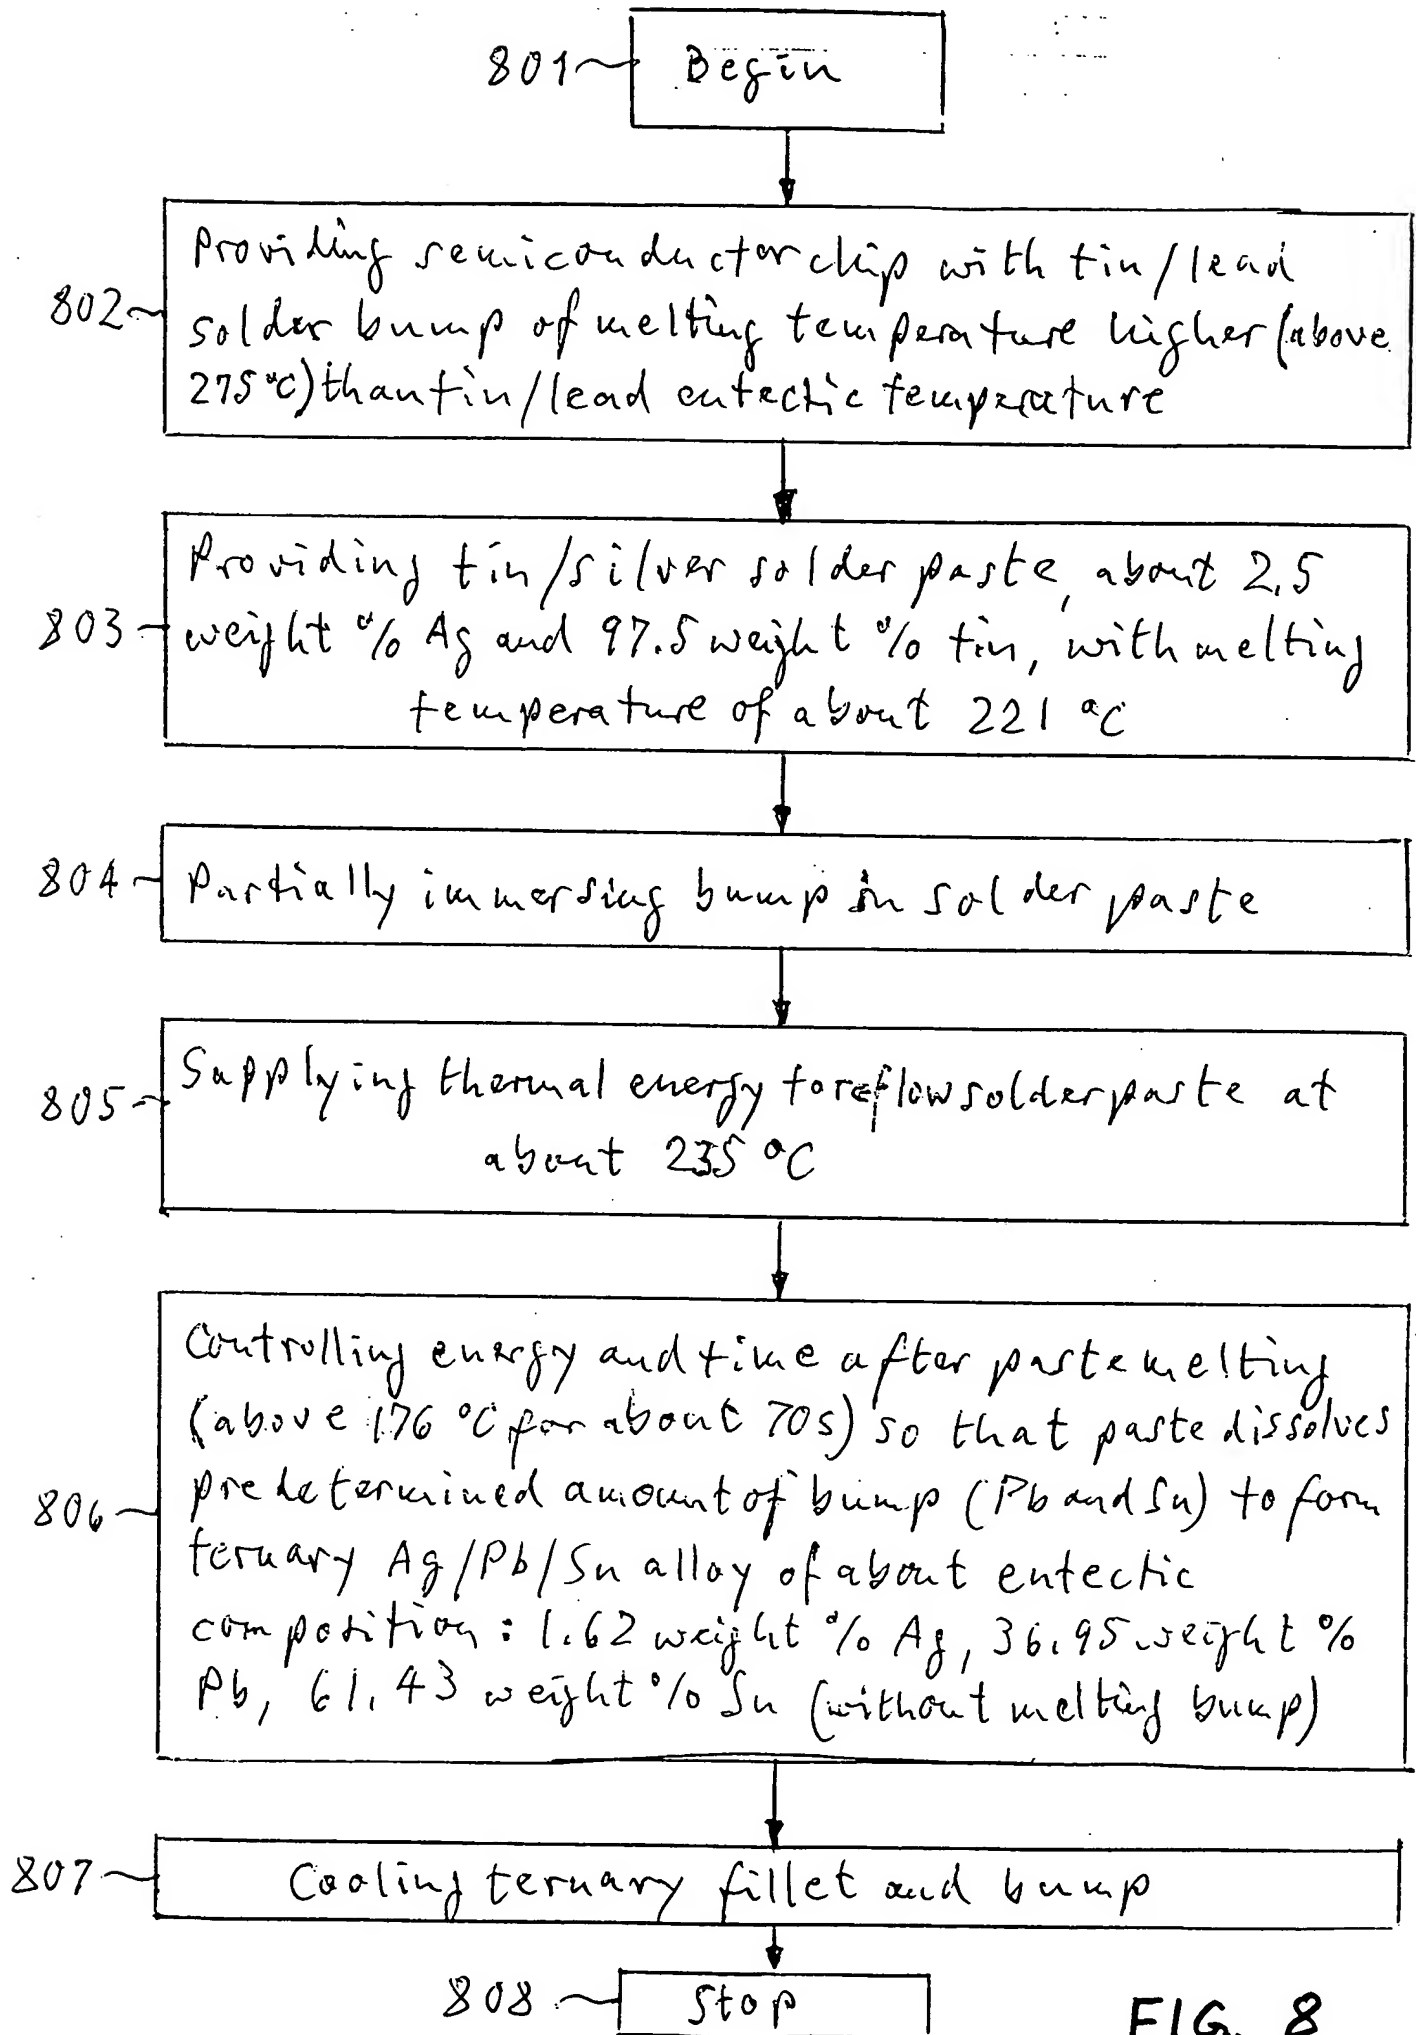 801 Begin
802 Providing semiconductor chip with tin/lead
solder bump of melting temperature higher (above
275°C) than tin/lead eutectic temperature
803 Providing tin/silver solder paste, about 2.5
weight % Ag and 97.5 weight % tin, with melting
temperature of about 221 °C
804 Partially immersing bump in solder paste
805 Supplying thermal energy to reflow solder paste at
about 235 °C
806 Controlling energy and time after paste melting
(above 176 °C for about 70s) so that paste dissolves
predetermined amount of bump (Pb and Sn) to form
ternary Ag/Pb/Sn alloy of about eutectic
composition: 1.62 weight % Ag, 36.95 weight %
Pb, 61.43 weight % Sn (without melting bump)
807 Cooling ternary fillet and bump
808 Stop
FIG. 8